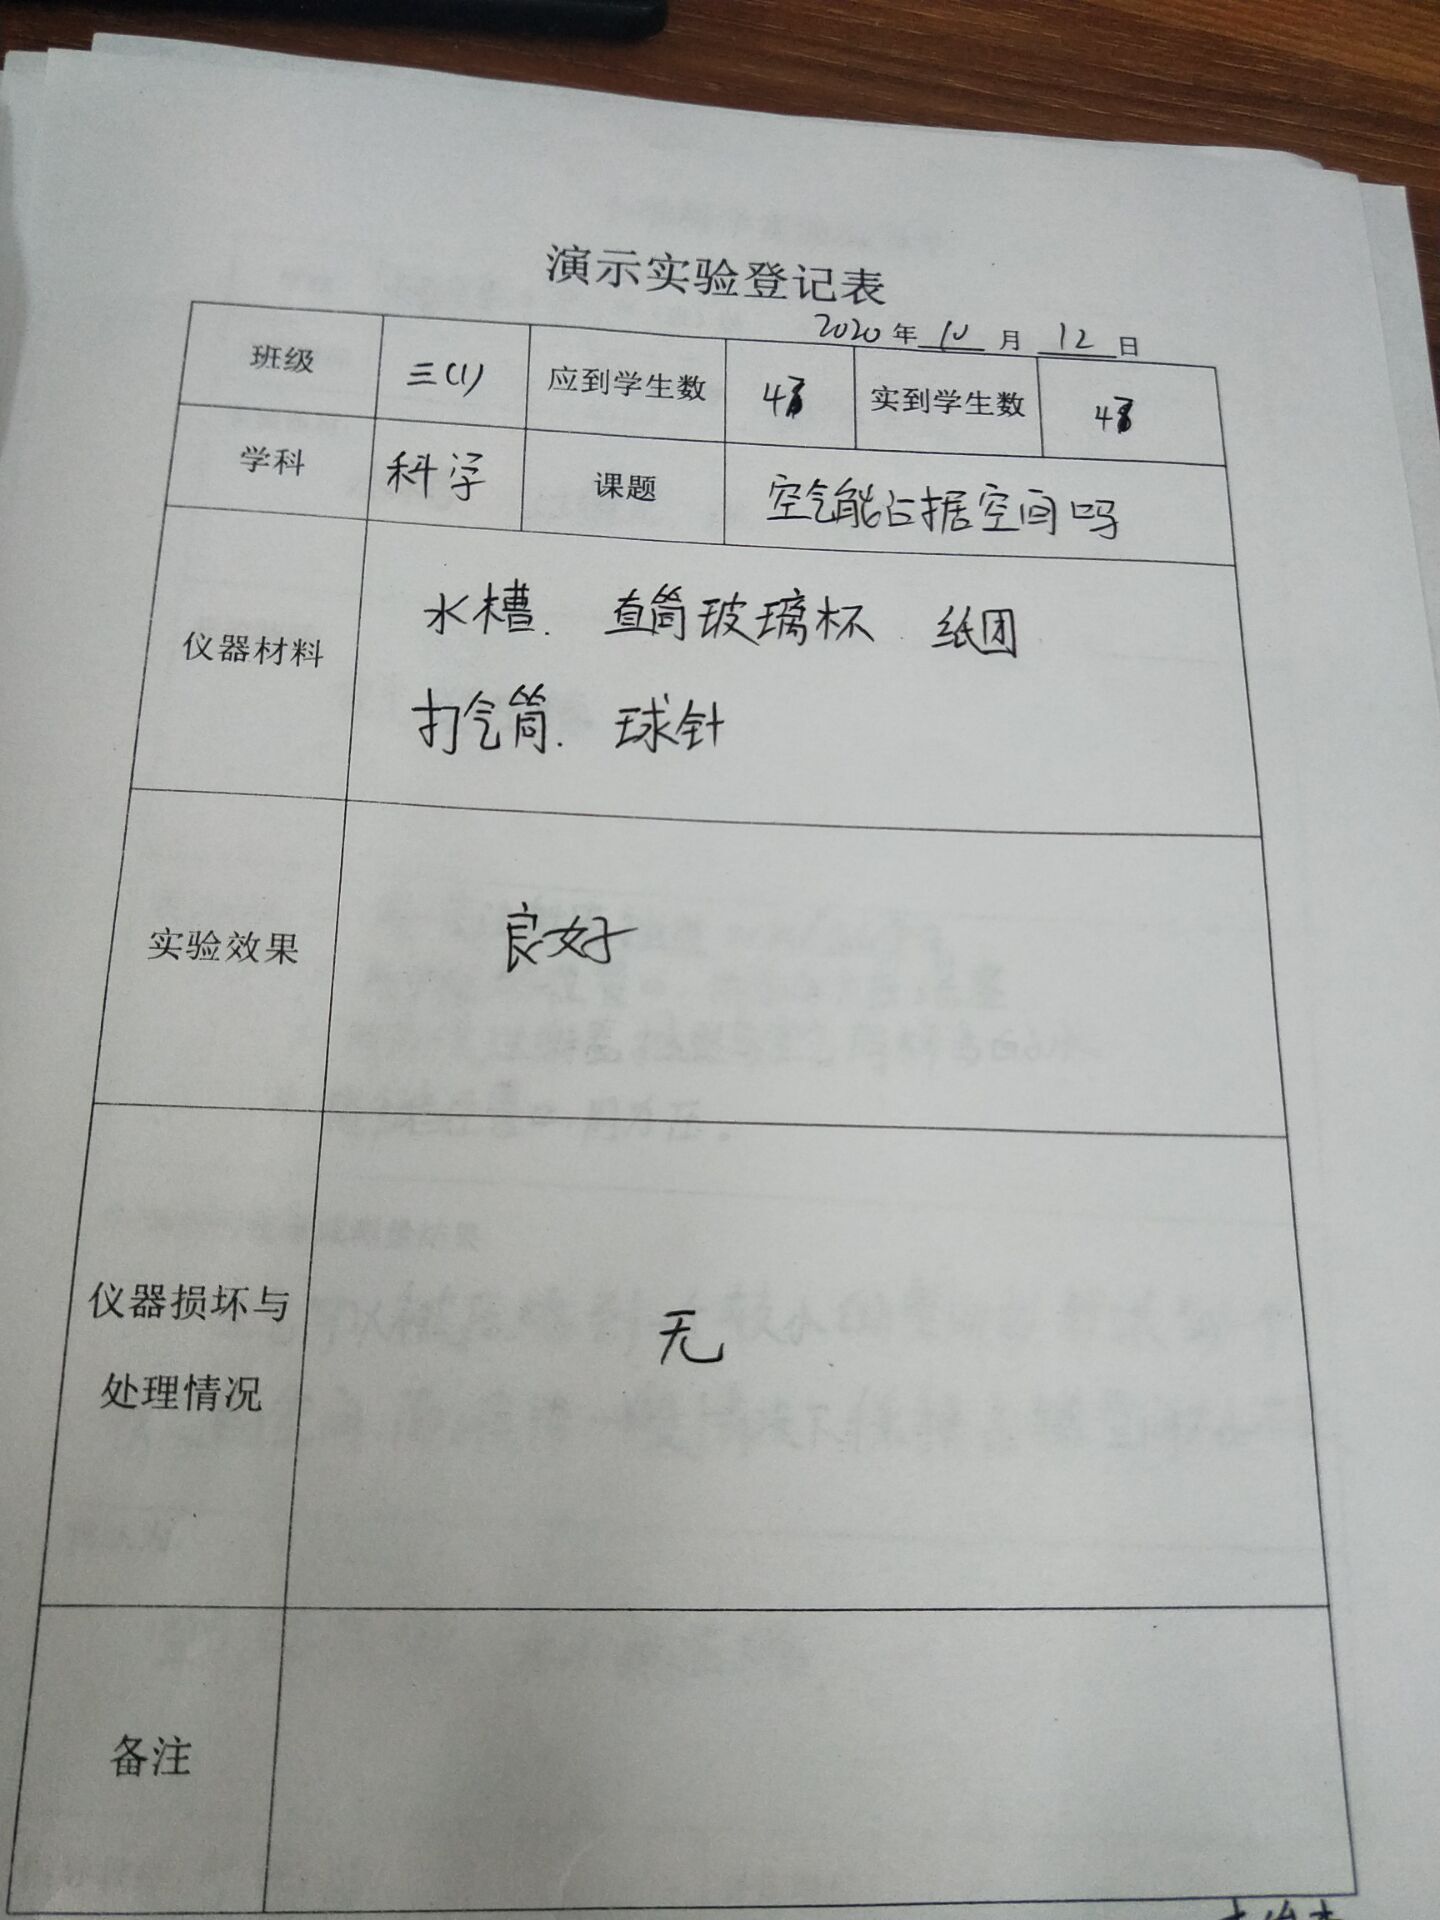 演示实验登记表
2020年10月12日
班级 三(1) 应到学生数 实到学生数
学科 科学 课题 空气能占据空间吗
仪器材料
水槽. 直筒玻璃杯 纸团
打气筒. 球针
实验效果 良好
仪器损坏与
处理情况
无
备注